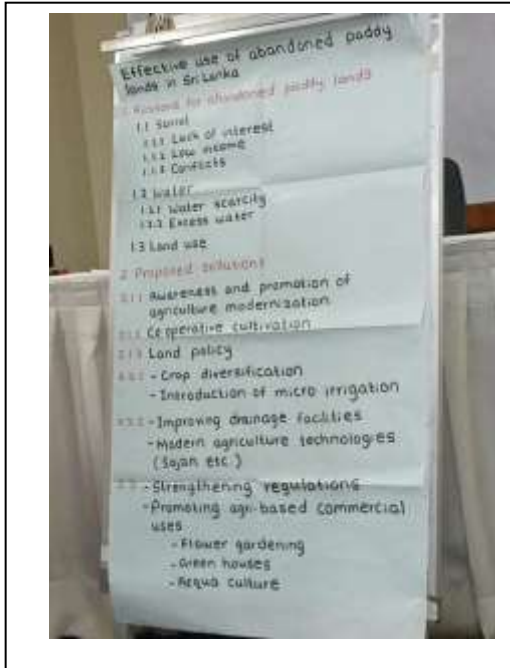 Effective use of abandoned paddy
lands in Sri Lanka
Reasons for abandoned paddy lands
1.1 Social
1.1.1 Lack of interest
1.1.2 Low income
1.1.3 Conflicts
1.2 Water
1.2.1 Water scarcity
1.2.2 Excess water
1.3 Land use
2 Proposed solutions
2.1.1 Awareness and promotion of
agriculture modernization
2.1.2 Co operative cultivation
2.1.3 Land policy
- Crop diversification
- Introduction of micro irrigation
- Improving drainage facilities
- Modern agriculture technologies
(Sojan etc)
- Strengthening regulations
- Promoting agri-based commercial
uses
- Flower gardening
- Green houses
- Acqua culture